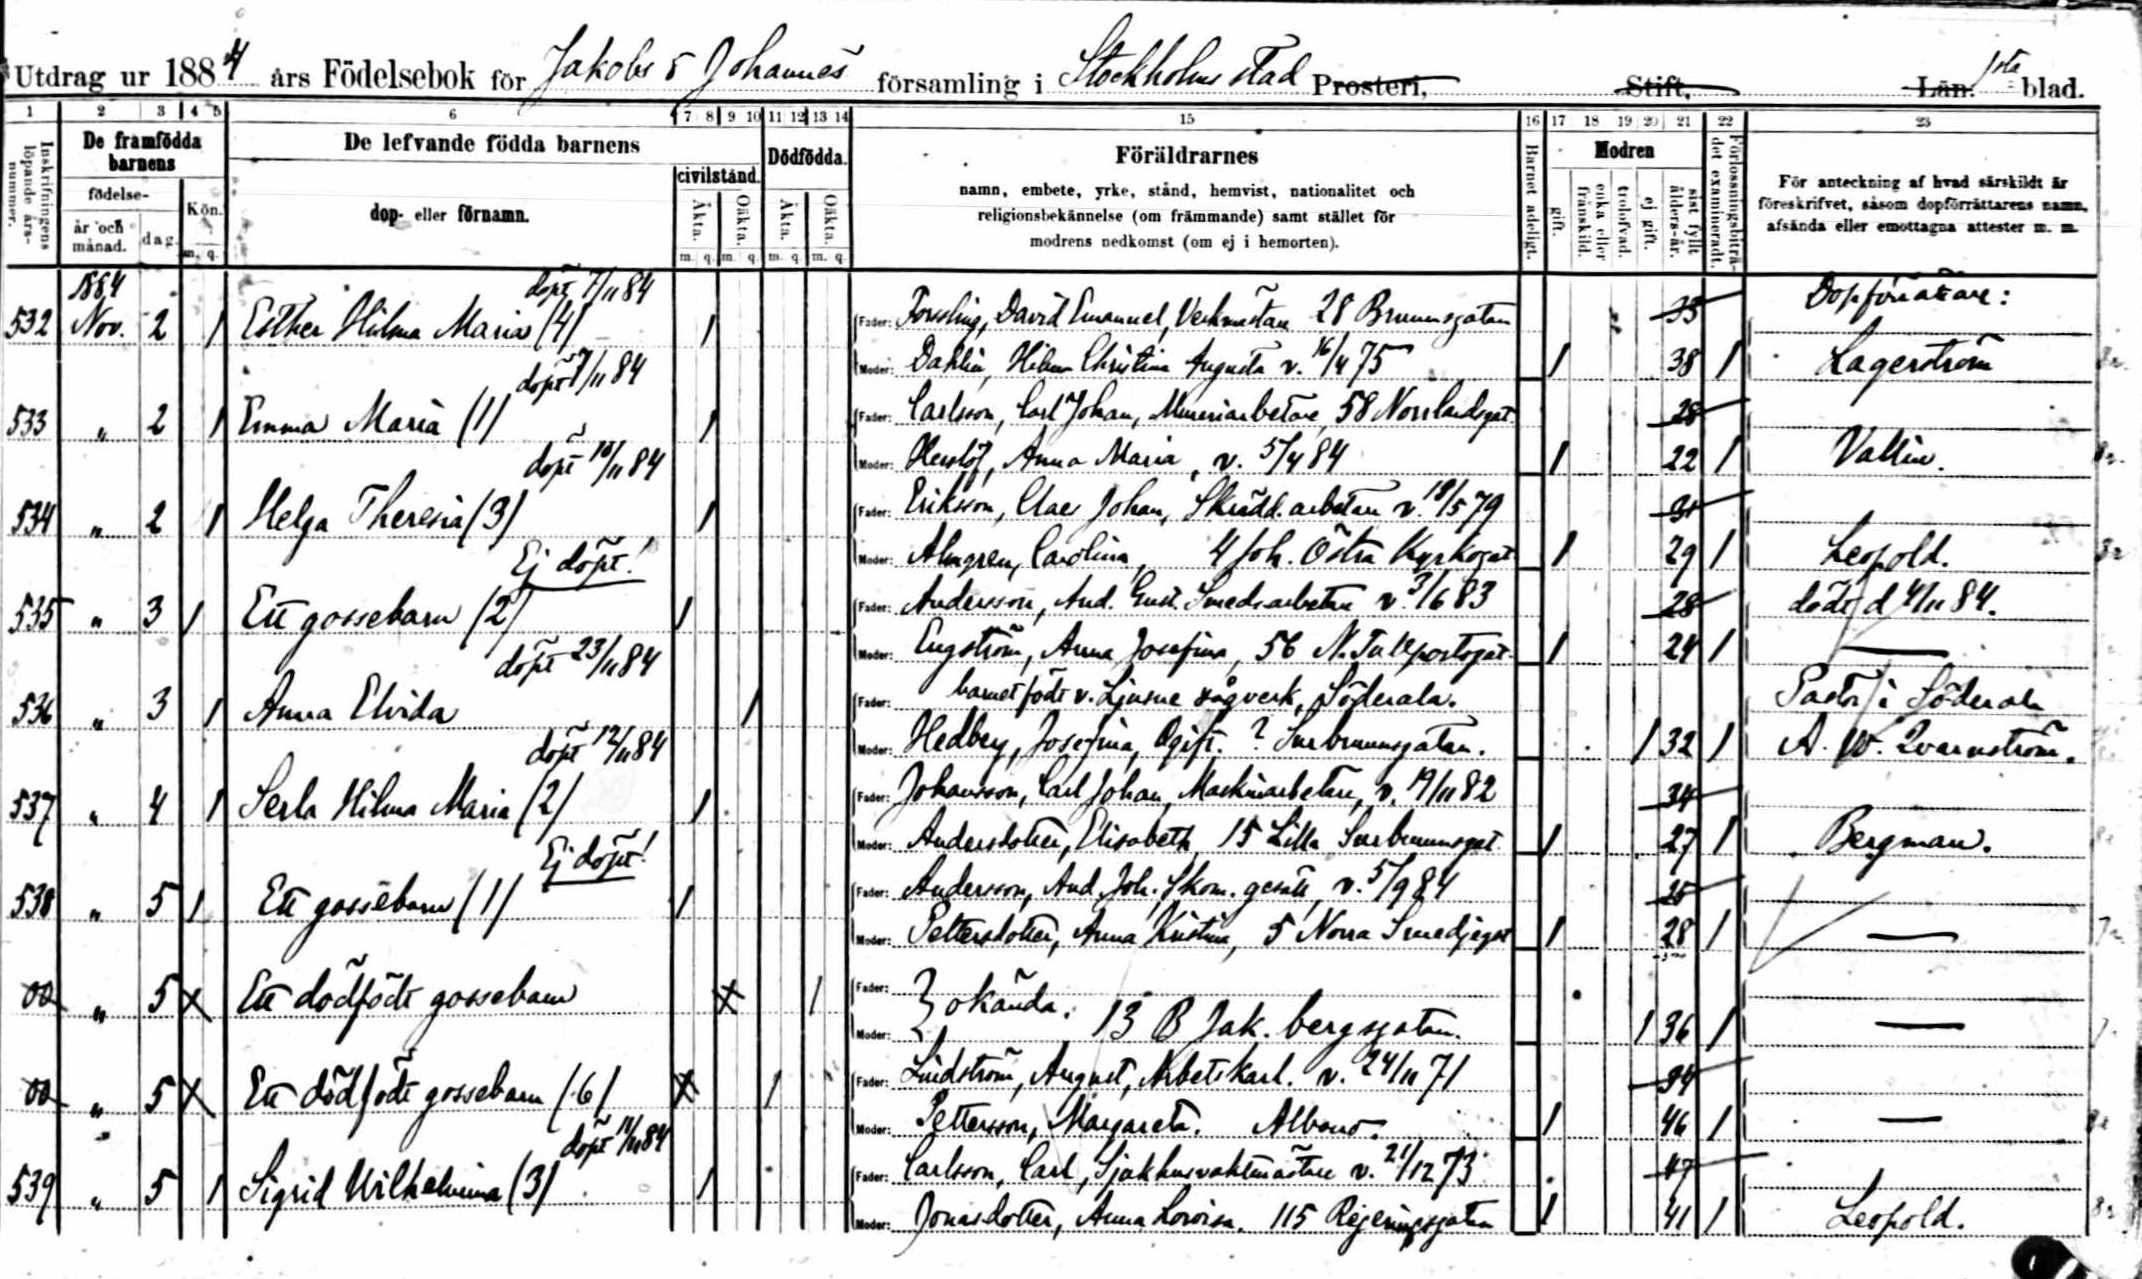 Utdrag ur 1884 års Födelsebok för Jakobs o Johannes församling i Stockholms stad Prosteri, Stift, Län. 1sta blad.
1 2 3 4 5 6 7 8 9 10 11 12 13 14 15 16 17 18 19 20 21 22 23
Inskrifningens löpande års-nummer.
De framfödda barnens
födelse-
år och månad.
dag.
Kön.
m. q.
De lefvande födda barnens
dop- eller förnamn.
civilstånd.
Äkta.
Oäkta.
m. q. m. q.
Dödfödda.
Äkta.
Oäkta.
m. q. m. q.
Föräldrarnes
namn, embete, yrke, stånd, hemvist, nationalitet och
religionsbekännelse (om främmande) samt stället för
modrens nedkomst (om ej i hemorten).
Barnet adeligt.
Modren
gift.
enka eller frånskild.
trolofvad.
ej gift.
sist fyllt ålders-år.
Förlossningsbiträdet examineradt.
För anteckning af hvad särskildt är
föreskrifvet, såsom dopförrättarens namn,
afsända eller emottagna attester m. m.
1884 döpt 7/11 84 Dopförrättare:
532 Nov. 2 1 Esther Hilma Maria (4) 1 Fader: Forssling, David Emanuel, Verkmästare 28 Brunnsgatan 35
Moder: Dahlin, Hilma Christina Augusta v. 16/4 75 1 38 1 Lagerström
döpt 9/11 84
533 " 2 1 Emma Maria (1) 1 Fader: Carlsson, Carl Johan, Mureriarbetare, 58 Norrlandsgat. 28
Moder: Herslöf, Anna Maria, v. 5/4 84 1 22 1 Vallin.
döpt 10/11 84
534 " 2 1 Helga Theresia (3) 1 Fader: Eriksson, Claes Johan, Skrädd.arbetare v. 18/5 79 31
Moder: Almgren, Carolina, 4 Joh. Östra Kyrkogat 1 29 1 Leopold.
Ej döpt!
535 " 3 1 Ett gossebarn (2) 1 Fader: Andersson, And. Gust. Smedsarbetare v. 3/6 83 28 dödt d 4/11 84.
Moder: Engström, Anna Josefina, 56 N. Tullportsgat. 1 24 1 —
döpt 23/11 84
536 " 3 1 Anna Elvida 1 Fader: barnet födt v. Ljusne sågverk, Söderala. Pastor i Söderala
Moder: Hedberg, Josefina, Ogift. ? Surbrunnsgatan. 1 32 1 A. W. Qvarnström.
döpt 12/11 84
537 " 4 1 Serla Hilma Maria (2) 1 Fader: Johansson, Carl Johan, Maskinarbetare, v. 19/11 82 34
Moder: Andersdotter, Elisabeth 15 Lilla Surbrunnsgat. 1 27 1 Bergman.
Ej döpt!
538 " 5 1 Ett gossebarn (1) 1 Fader: Andersson, And. Joh. Skom. gesäll, v. 5/9 84 25
Moder: Pettersdotter, Anna Kristina, 5 Norra Smedjegat 1 28 1 —
00 " 5 X Ett dödfödt gossebarn X 1 Fader:
Moder: } okända. 13 B Jak. bergsgatan. 1 36 1 —
00 " 5 X Ett dödfödt gossebarn (6) X 1 Fader: Lindström, August, Arbetskarl. v. 24/11 71 34
Moder: Pettersson, Margareta. Albano. 1 46 1 —
döpt 11/11 84
539 " 5 1 Sigrid Wilhelmina (3) 1 Fader: Carlsson, Carl, Sjukhusvaktmästare v. 21/12 73 47
Moder: Jonasdotter, Anna Lovisa. 115 Regeringsgatan 1 41 1 Leopold.